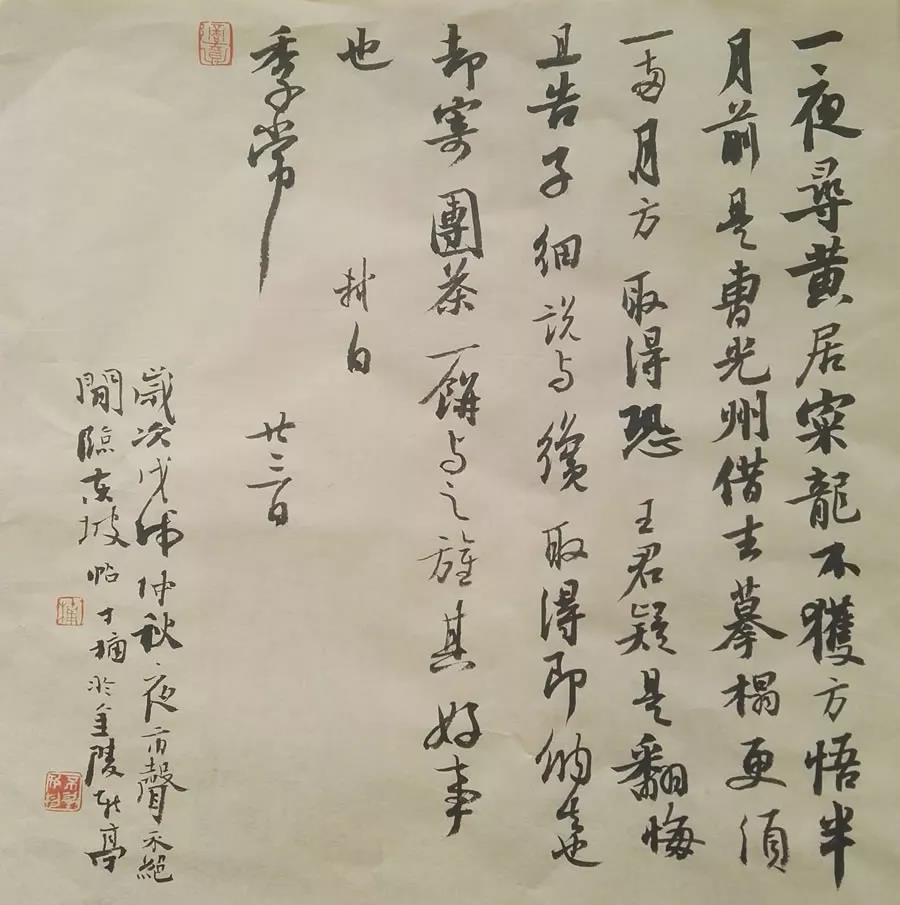 一夜尋黄居寀龍不獲方悟半
月前是曹光州借去摹榻更須
一兩月方取得恐王君疑是翻悔
且告子細說与纔取得即納去也
却寄團茶一餅与之旌其好事
也
軾白
季常
廿三日
歲次戊戌仲秋〻夜雨聲不絕
間臨東坡帖于
金陵
亭